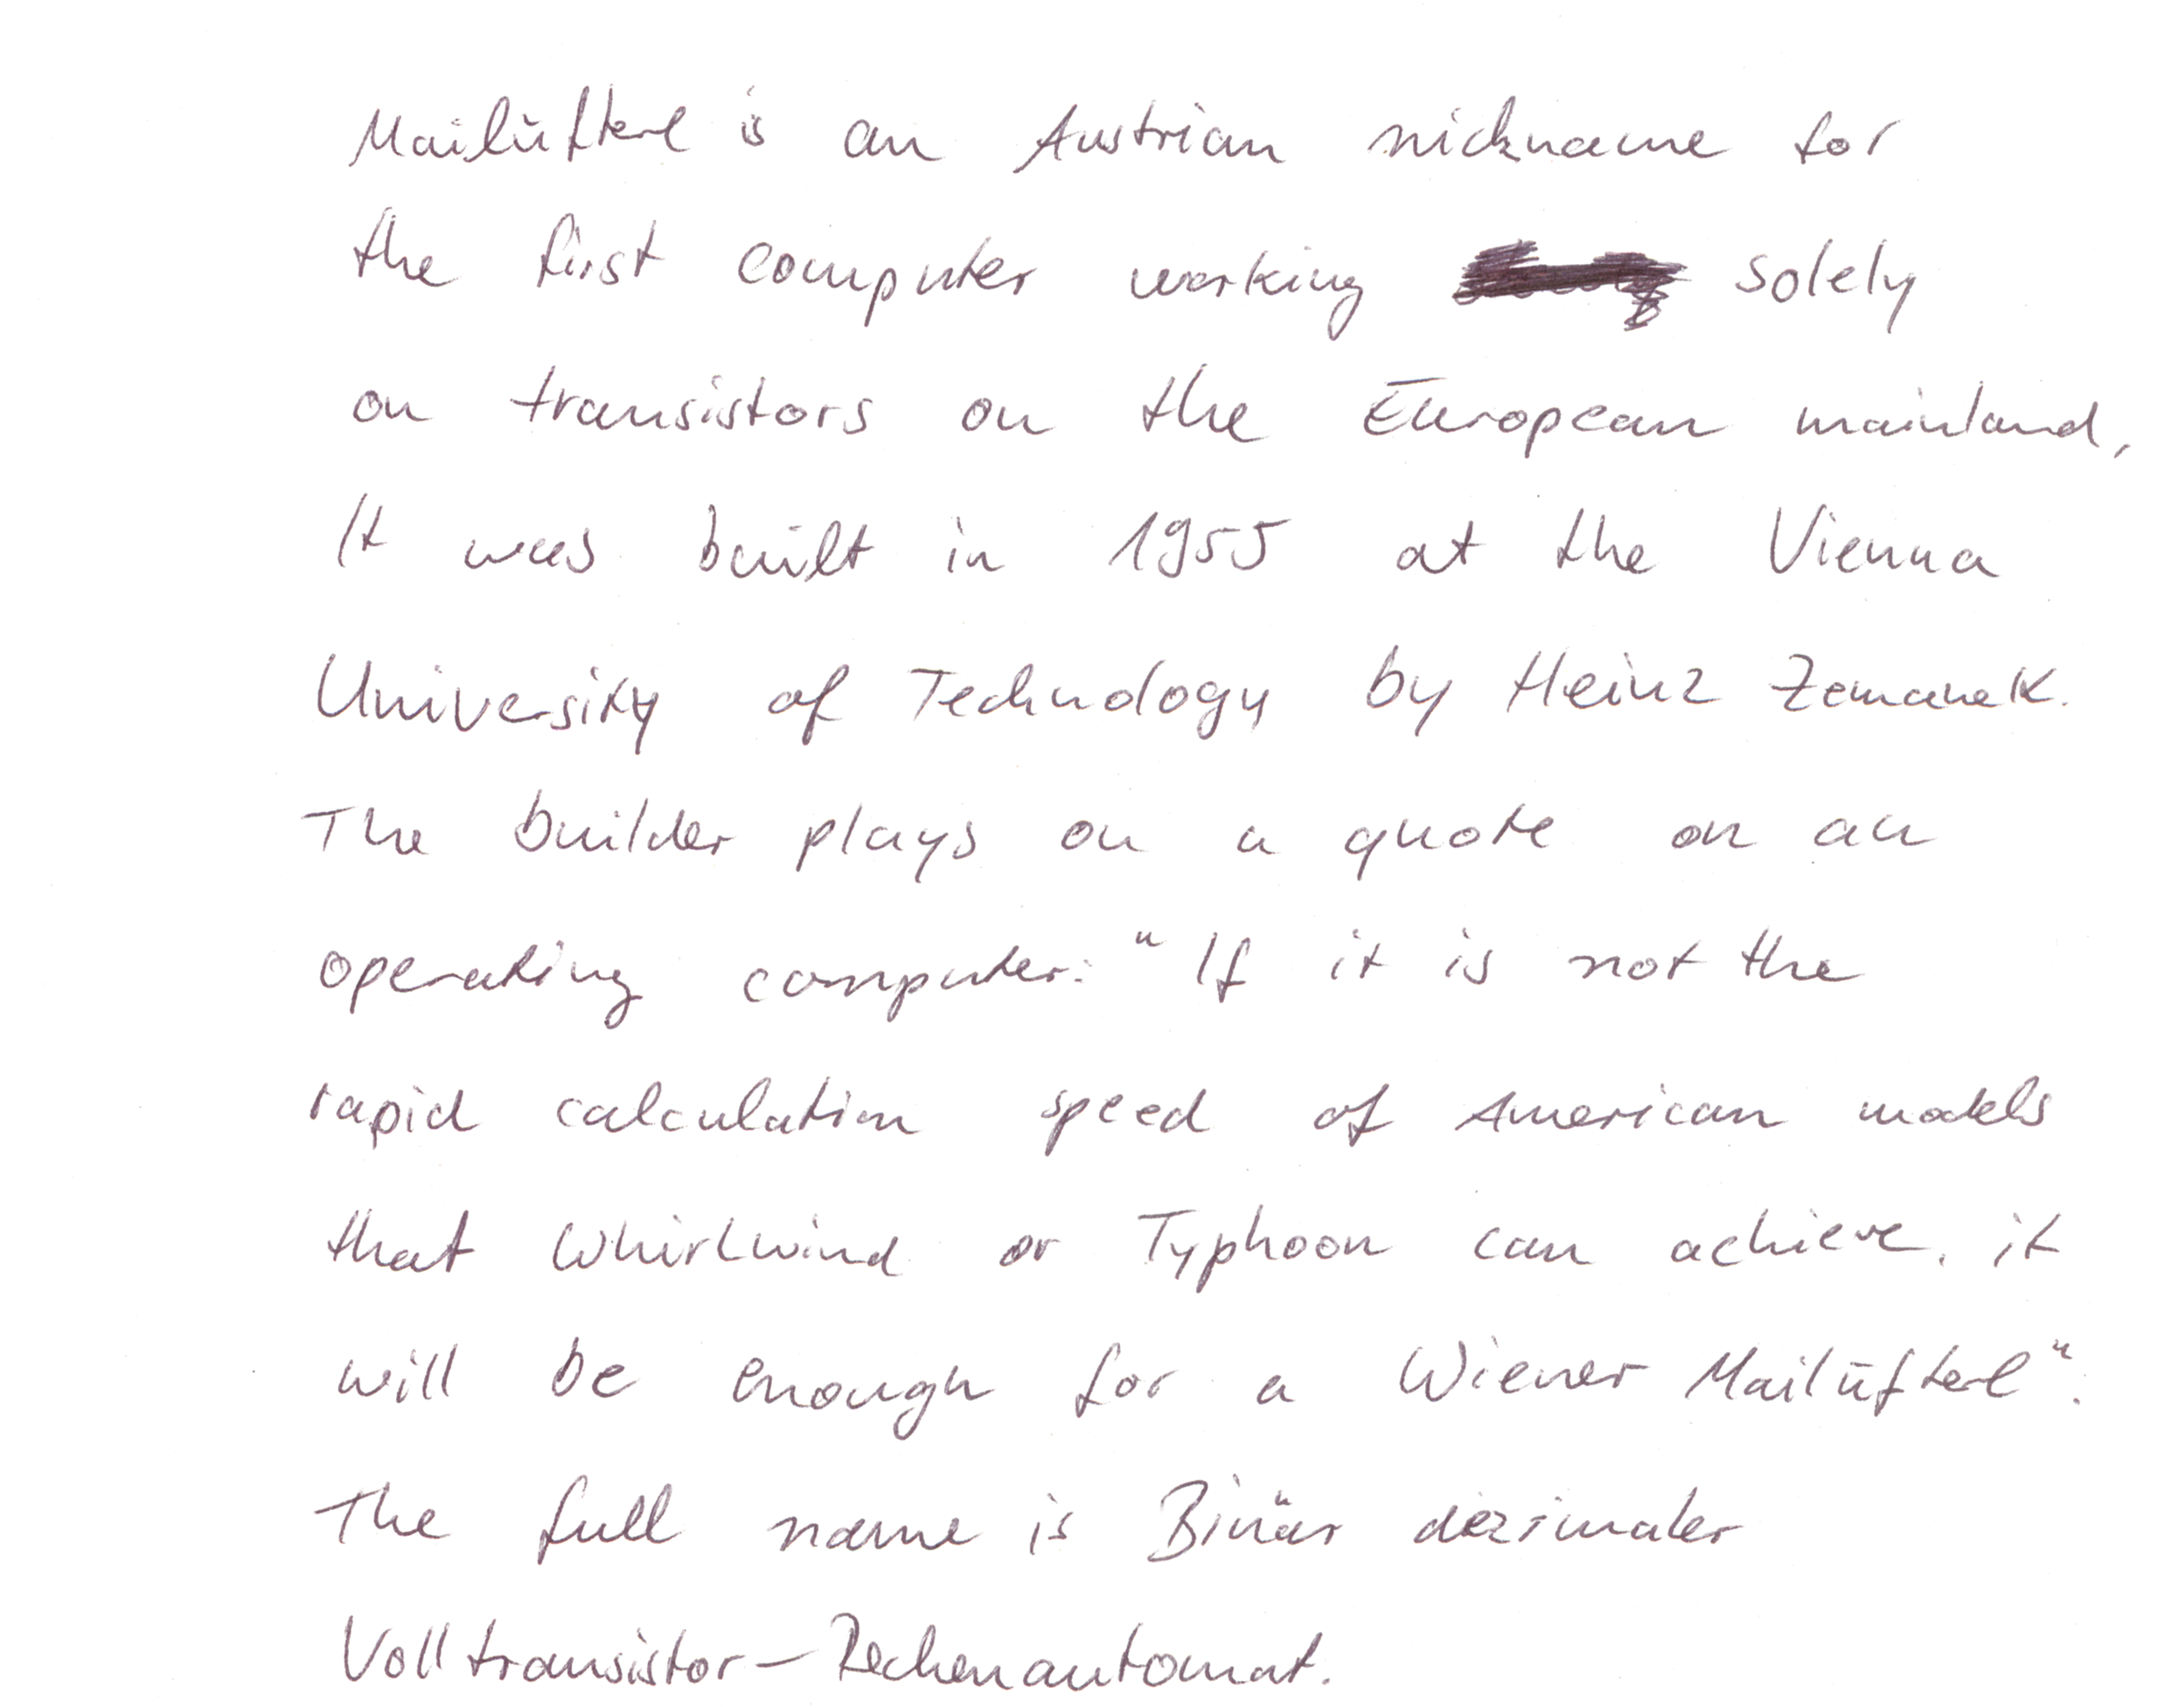 Mailüfterl is an Austrian nickname for
the first computer working solely
on transistors on the European mainland,
It was built in 1955 at the Vienna
University of Technology by Heinz Zemanek.
The builder plays on a quote on an
operating computer: "If it is not the
rapid calculation speed of American models
that Whirlwind or Typhoon can achieve, it
will be enough for a Wiener Mailüfterl".
The full name is Binär dezimaler
Volltransistor-Rechenautomat.